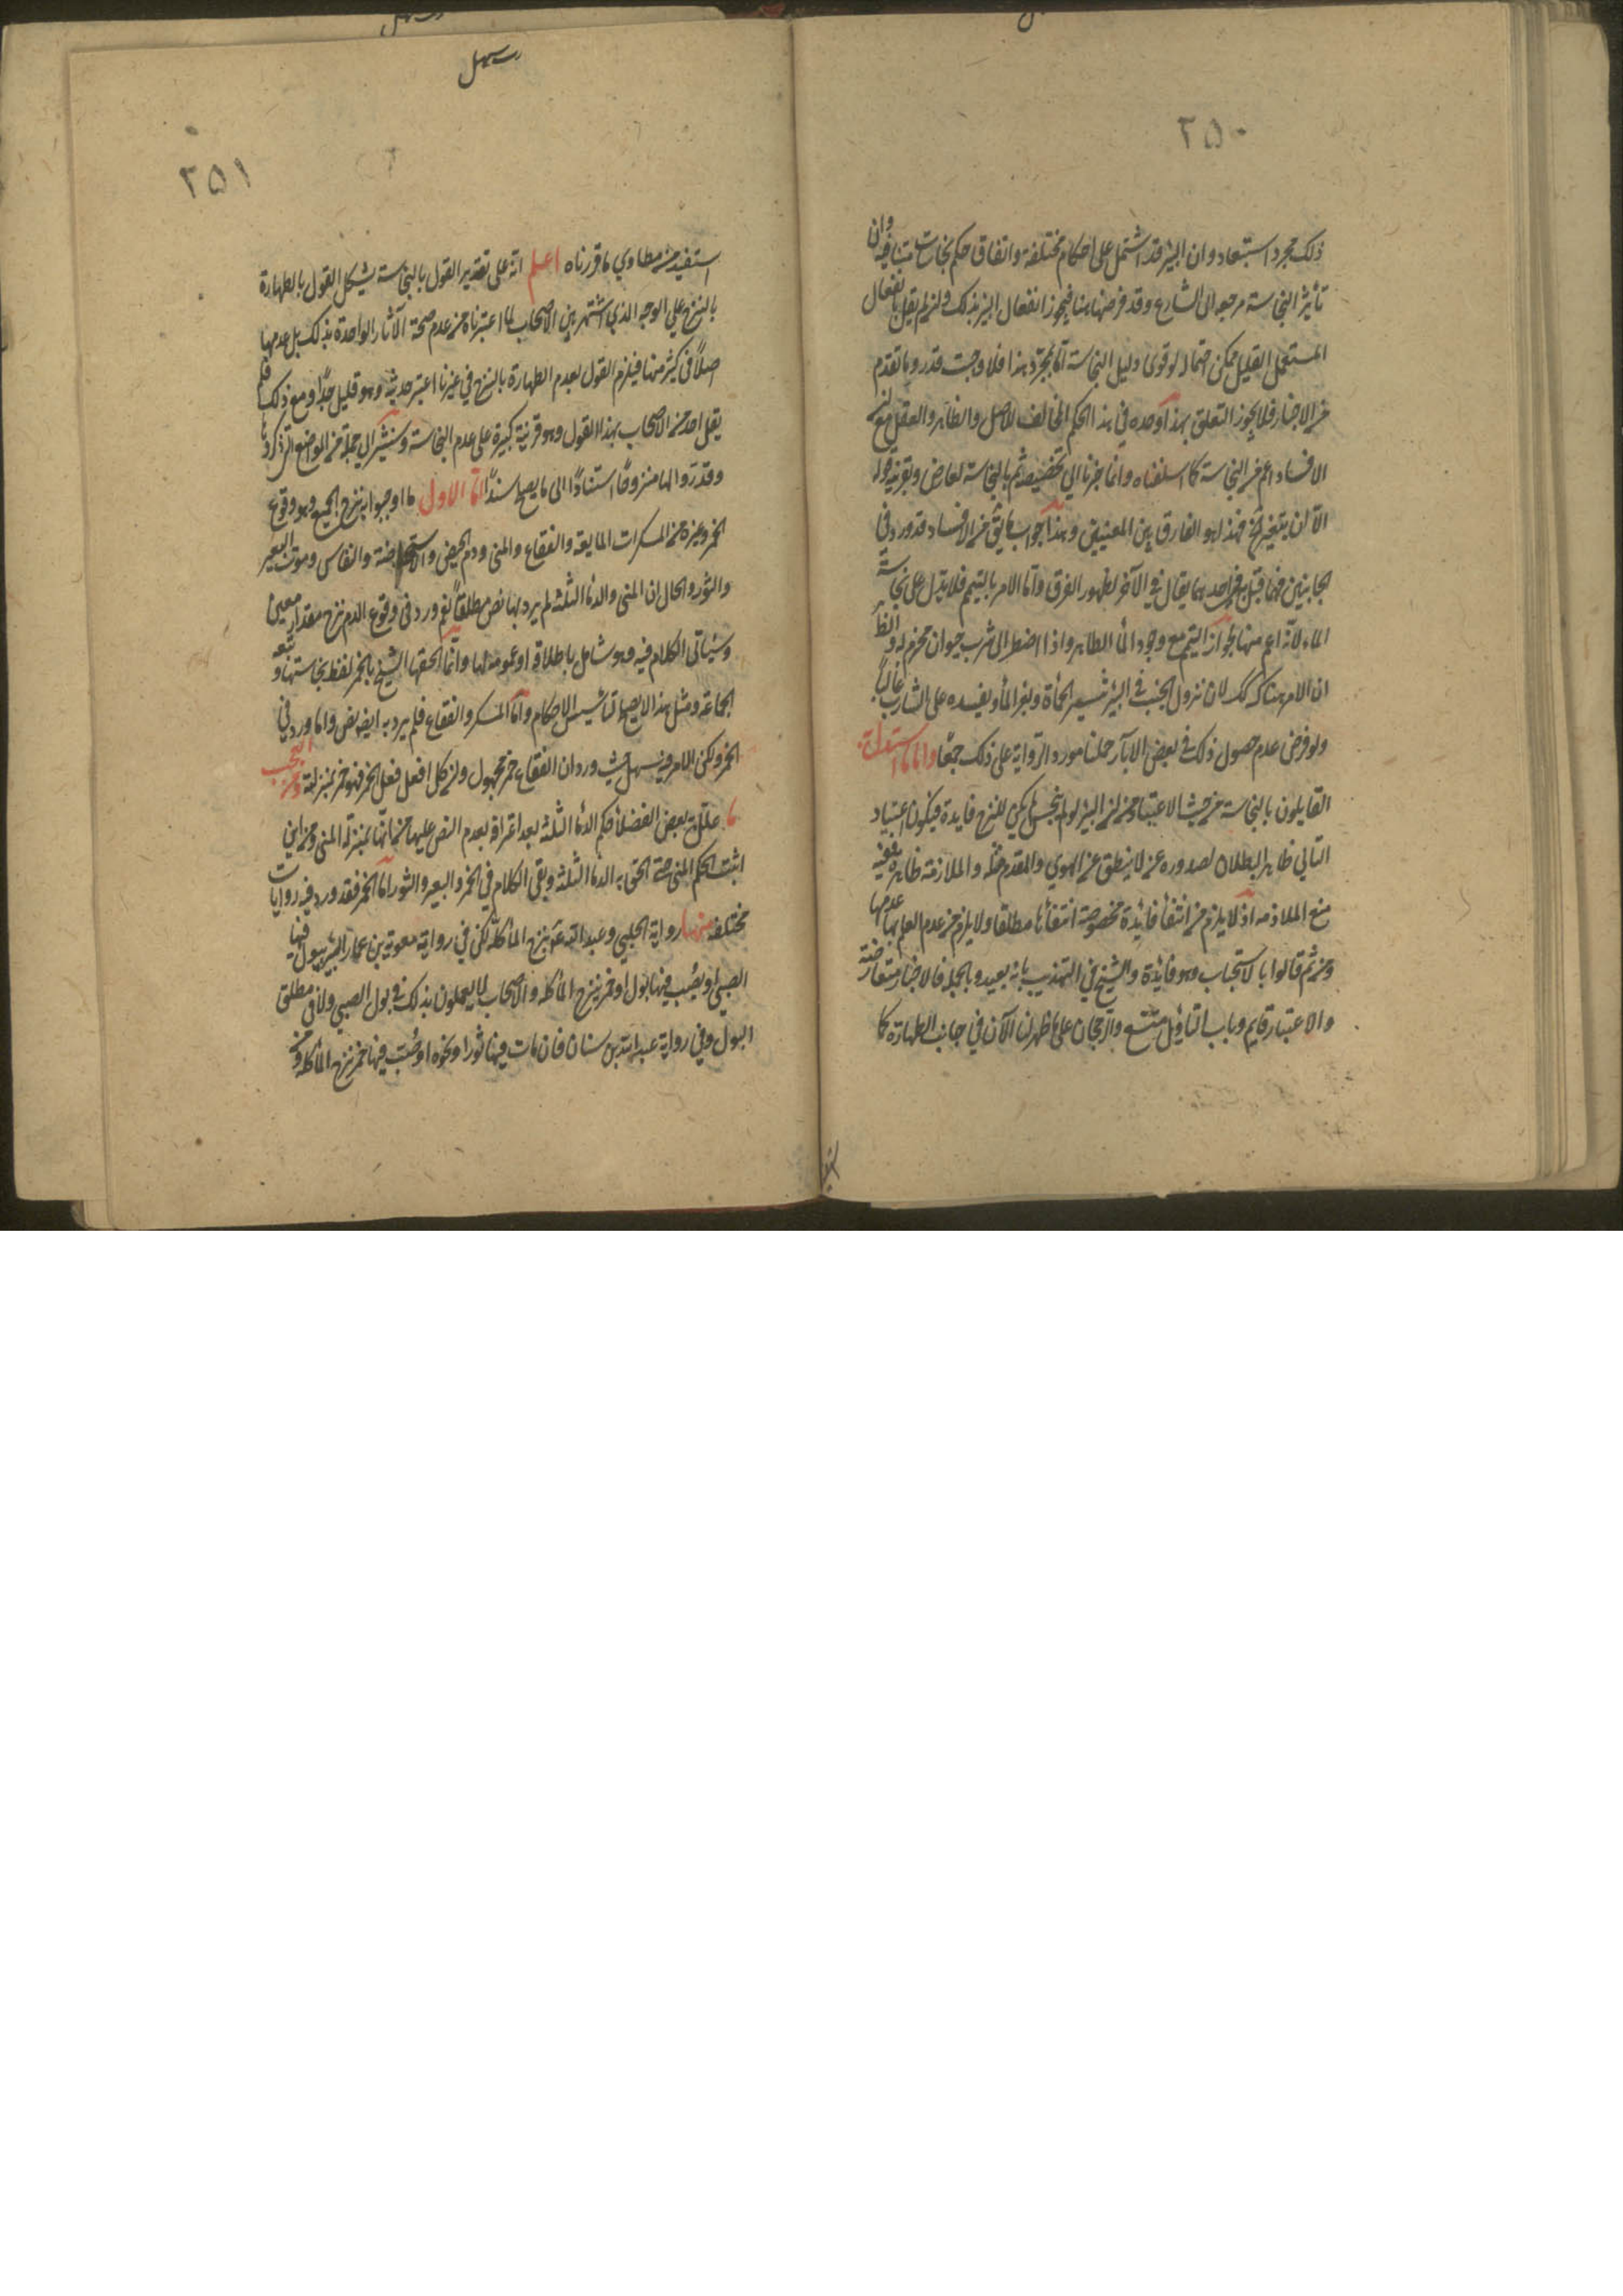 ٢٥٠
ذلك مجرد استبعاد وان البئر قد اشتمل على احكام مختلفة واتفاق حكم نجاسات متباينة وان
تأثير النجاسة مرجعه الى الشارع وقد فرضها هنا فيجوز انفعال البئر بذلك وان لم يقل بانفعال
المستعمل القليل ممكن اعتماد لو قوى دليل النجاسة اما بمجرد هذا فلا وحيث قدروا ما تقدم
من الاخبار فلا يجوز التعلق بهذا وحده في هذا الحكم المخالف للاصل والظاهر والعقل مع ان
الافساد اعم من النجاسة كما اسلفناه وانما جزنا الى تخصيصه ثم بالنجاسة لعارض وبقرينة قوله
الا ان يتغير ريحه فهذا هو الفارق بين المعنيين وبهذا جواب ما بقي من الافساد قد ورد في
الجانبين فما قيل في احدهما يقال في الآخر لظهور الفرق واما الامر بالتيمم فلا يدل على نجاسة
الماء لانه اعم منها لجواز التيمم مع وجود الماء الطاهر واذا اضطر الى شرب حيوان محترم له والظاهر
ان الامر هناك كذلك لان نزول الجنب في البئر يثير الحمأة ويغير الماء ويفسده على الشارب غالبا
ولو فرض عدم حصول ذلك في بعض الابآر حملنا مورد الرواية على ذلك جمعا واما ما استدل به
القايلون بالنجاسة من حيث الاعتبار من ان البئر لو لم ينجس لم يكن للنزح فايدة فيكون عبثا و
التالي ظاهر البطلان لصدوره عن لا ينطق عن الهوى والمقدم مثله والملازمة ظاهرة ففيه
منع الملازمة اذ لا يلزم من انتفاء فائدة مخصوصة انتفائها مطلقا ولا يلزم من عدم العلم بها عدمها
ومن ثم قالوا بالاستحباب وهو فائدة والشيخ في التهذيب بانه بعيد وبالجملة فالاخبار متعارضة
والاعتبار قايم وباب التاويل متسع والرجحان على ما ظهر لنا الآن في جانب الطهارة كما
سهل
٢٥١
استفيد من مطاوي ما قررناه اعلم انه على تقدير القول بالنجاسة يشكل القول بالطهارة
بالنزح على الوجه الذي اشتهر بين الاصحاب لما اعتبرناه من عدم صحة الآثار الواردة بذلك بل عدمها
اصلا في كثير منها فيلزم القول بعدم الطهارة بالنزح في غير ما اعتبر حديثه وهو قليل جدا ومع ذلك فلم
يقل احد من الاصحاب بهذا القول وهو قرينة كبيرة على عدم النجاسة وسنشير الى جملة من المواضع التي ذكروها
وقدروا لها منزوحا استنادا الى ما يصح سندا اما الاول ما اوجبوا به نزح الجميع وهو وقوع
الخمر وغيره من المسكرات المايعة والفقاع والمني ودم الحيض والاستحاضة والنفاس وموت البعير
والثور والحال ان المني والدماء الثلثة لم يرد بها نص مطلقا نعم ورد في وقوع الدم نزح مقدار معين
وسياتي الكلام فيه وهو شامل باطلاقه او عمومه لها وانما الحقها الشيخ بالخمر لغلظ نجاستها وتبعه
الجماعة ومثل هذا لا يصح لتاسيس الاحكام واما المسكر والفقاع فلم يرد به ايضا نص وانما ورد في
الخمر ولكن الامر فيه سهل حيث ورد ان الفقاع خمر مجهول وان كل ما فعل فعل الخمر فهو خمر بمنزلة ومن العجب
ما علل به بعض الفضلاء حكم الدماء الثلثة بعد اعترافه بعدم النص عليها من انها بمنزلة المني ومن اين
اثبت الحكم المني حتى الحق به الدماء الثلثة وبقي الكلام في الخمر والبعير والثور اما الخمر فقد ورد فيه روايات
مختلفة منها رواية الحلبي وعبد الله ع بنزح الماء كله لكن في رواية معوية بن عمار البئر يبول فيها
الصبي او يصب فيها بول او خمر ينزح الماء كله والاصحاب لا يعملون بذلك في بول الصبي ولا في مطلق
البول وفي رواية عبد الله بن سنان فان مات فيها ثور او نحوه او صب فيها خمر نزح الماء كله و